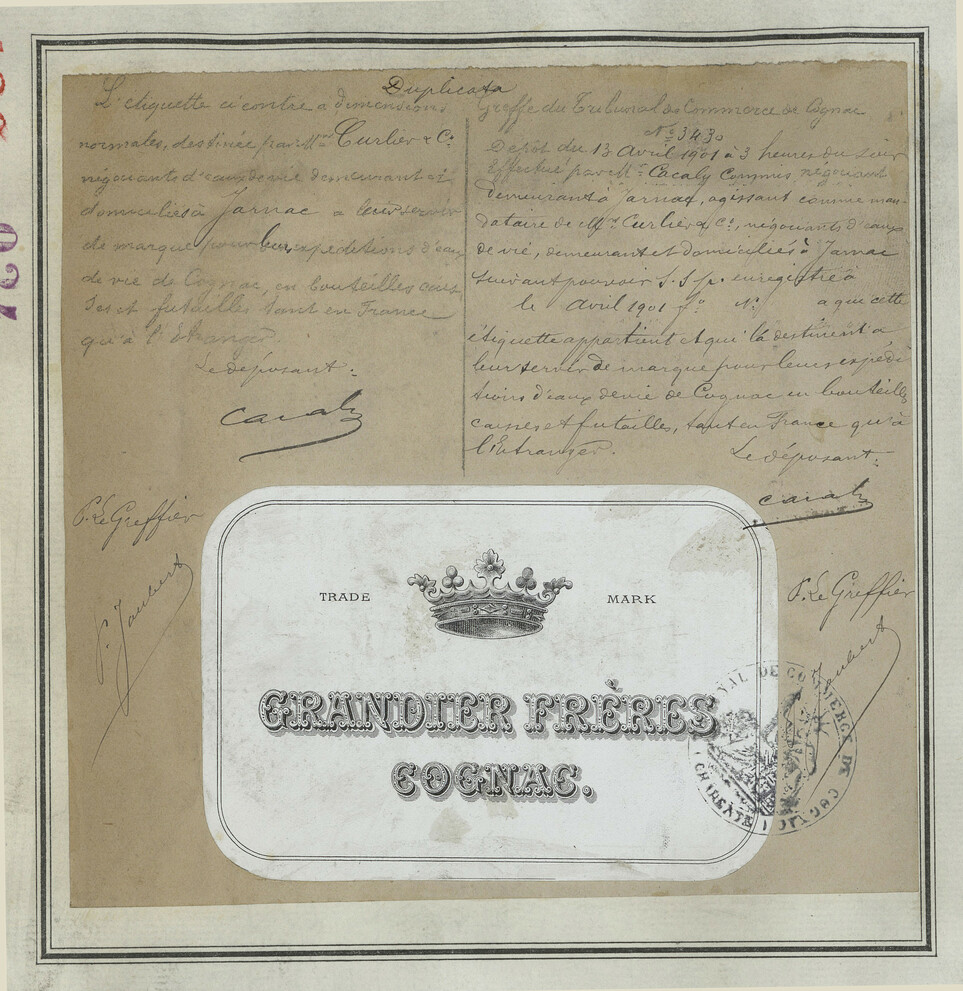 Duplicata
L'étiquette ci contre a dimensions
normales, destinée par MM. Curlier & Cie
négociants d'eaux de vie demeurant et
domiciliés à Jarnac a leur servir
de marque pour leurs expéditions d'eaux
de vie de Cognac, en bouteilles cais-
ses et futailles tant en France
qu'à l'Etranger.
Le déposant:
Cacaly
P. Le Greffier
P. Jaubert
Greffe du Tribunal de Commerce de Cognac
No 3430
Dépôt du 13 Avril 1901 à 3 heures du soir
Effectué par Mr. Cacaly Commis négociant
demeurant à Jarnac, agissant comme man-
dataire de MM. Curlier & Co, négociants d'eaux
de vie, demeurant et domiciliés à Jarnac
suivant pouvoir S.S.p. enregistré à
le Avril 1901 fo No a qui cette
étiquette appartient et qui la destinent a
leur servir de marque pour leurs expédi
tions d'eaux de vie de Cognac en bouteilles
caisses et futailles, tant en France qu'à
l'Etranger.
Le déposant:
Cacaly
P. Le Greffier
Jaubert
TRADE MARK
GRANDIER FRÈRES
COGNAC.
TRIBUNAL DE COMMERCE DE COGNAC
(CHARENTE)
720